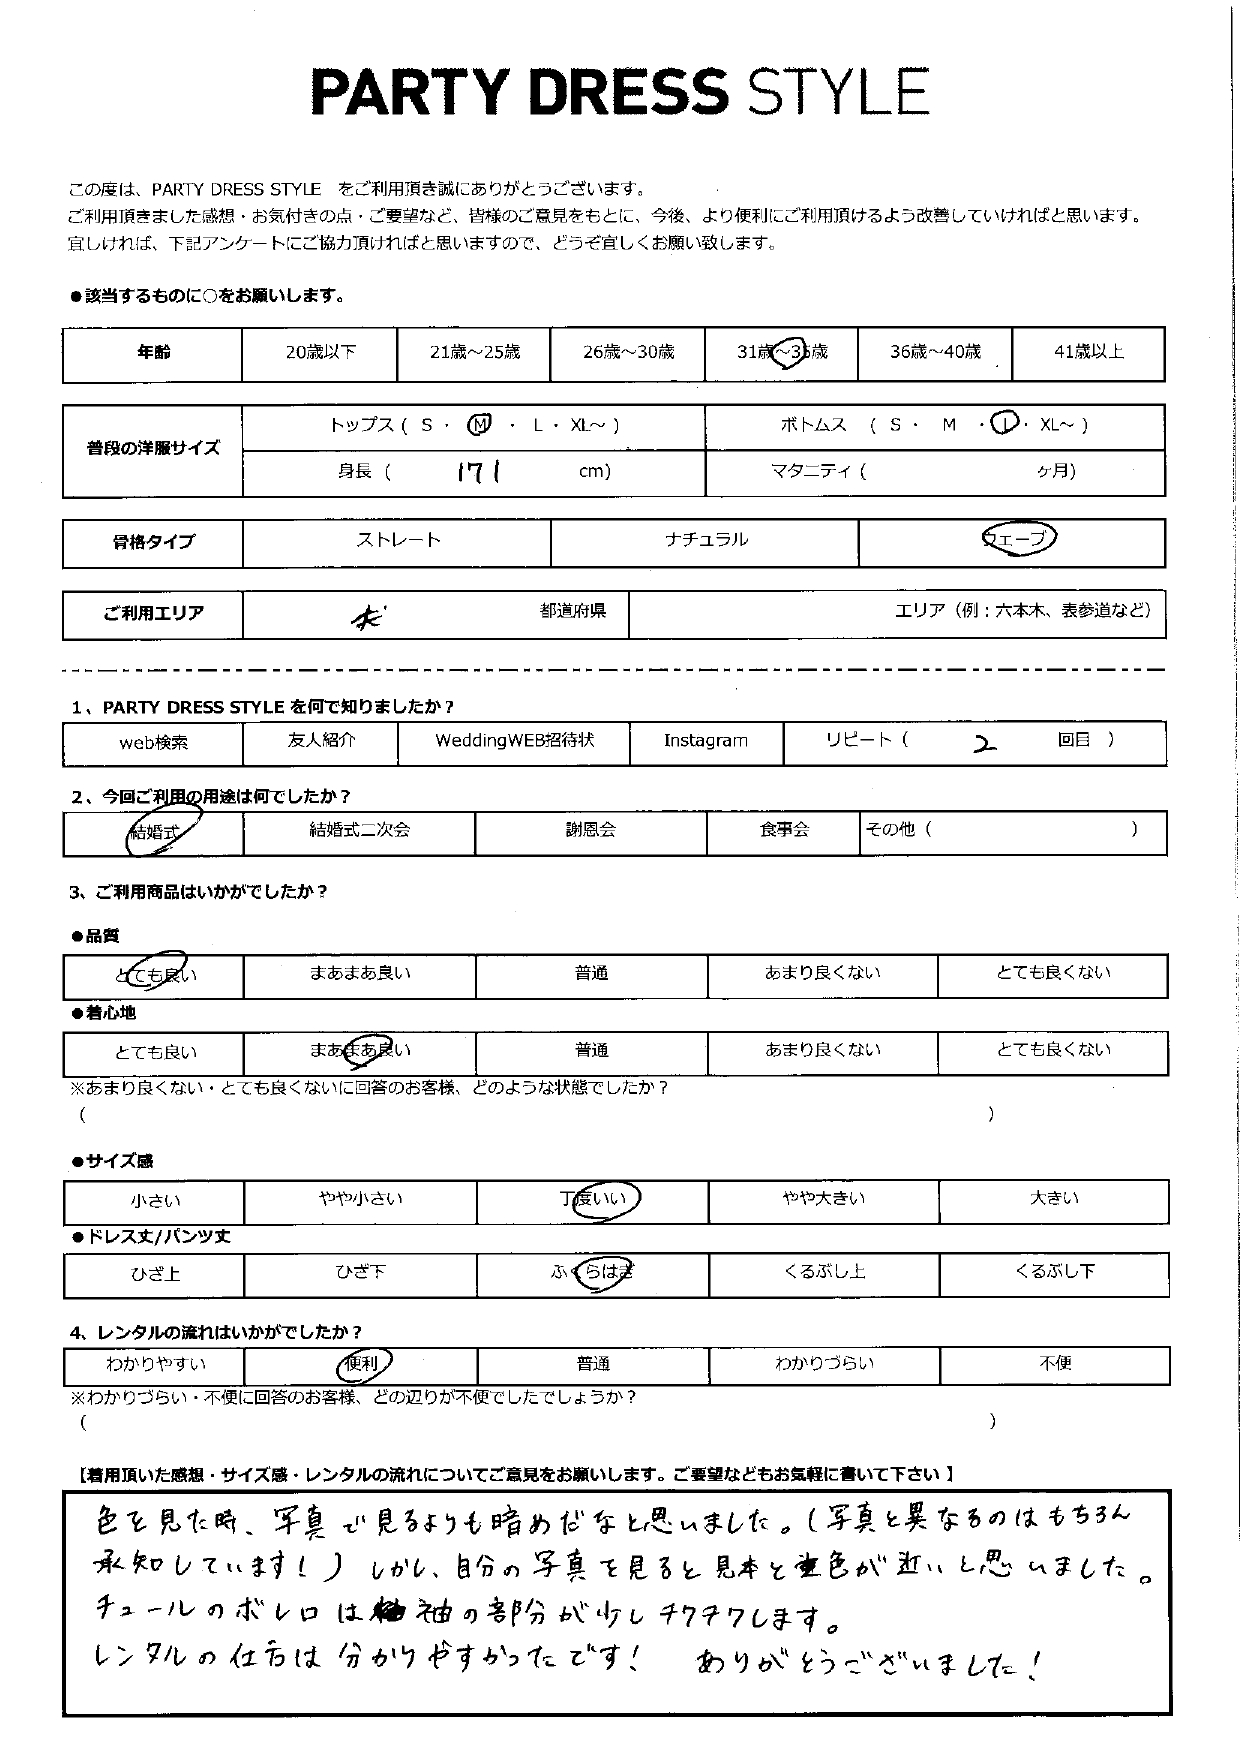 PARTY DRESS STYLE
この度は、PARTY DRESS STYLE をご利用頂き誠にありがとうございます。
ご利用頂きました感想・お気付きの点・ご要望など、皆様のご意見をもとに、今後、より便利にご利用頂けるよう改善していければと思います。
宜しければ、下記アンケートにご協力頂ければと思いますので、どうぞ宜しくお願い致します。
●該当するものに○をお願いします。
年齢 20歳以下 21歳～25歳 26歳～30歳 31歳～35歳 36歳～40歳 41歳以上
普段の洋服サイズ
トップス ( S ・ M ・ L ・ XL～ ) ボトムス ( S ・ M ・ L ・ XL～ )
身長 ( 171 cm) マタニティ ( ヶ月)
骨格タイプ ストレート ナチュラル ウェーブ
ご利用エリア 都道府県 エリア（例：六本木、表参道など）
1、PARTY DRESS STYLE を何で知りましたか？
web検索 友人紹介 WeddingWEB招待状 Instagram リピート ( 2 回目 )
2、今回ご利用の用途は何でしたか？
結婚式 結婚式二次会 謝恩会 食事会 その他 ( )
3、ご利用商品はいかがでしたか？
●品質
とても良い まあまあ良い 普通 あまり良くない とても良くない
●着心地
とても良い まあまあ良い 普通 あまり良くない とても良くない
※あまり良くない・とても良くないに回答のお客様、どのような状態でしたか？
( )
●サイズ感
小さい やや小さい 丁度いい やや大きい 大きい
●ドレス丈/パンツ丈
ひざ上 ひざ下 ふくらはぎ くるぶし上 くるぶし下
4、レンタルの流れはいかがでしたか？
わかりやすい 便利 普通 わかりづらい 不便
※わかりづらい・不便に回答のお客様、どの辺りが不便でしたでしょうか？
( )
【着用頂いた感想・サイズ感・レンタルの流れについてご意見をお願いします。ご要望などもお気軽に書いて下さい】
色を見た時、写真で見るよりも暗めだなと思いました。(写真と異なるのはもちろん
承知しています！) しかし、自分の写真を見ると見本と色が近いと思いました。
チュールのボレロは袖の部分が少しチクチクします。
レンタルの仕方は分かりやすかったです！ ありがとうございました！